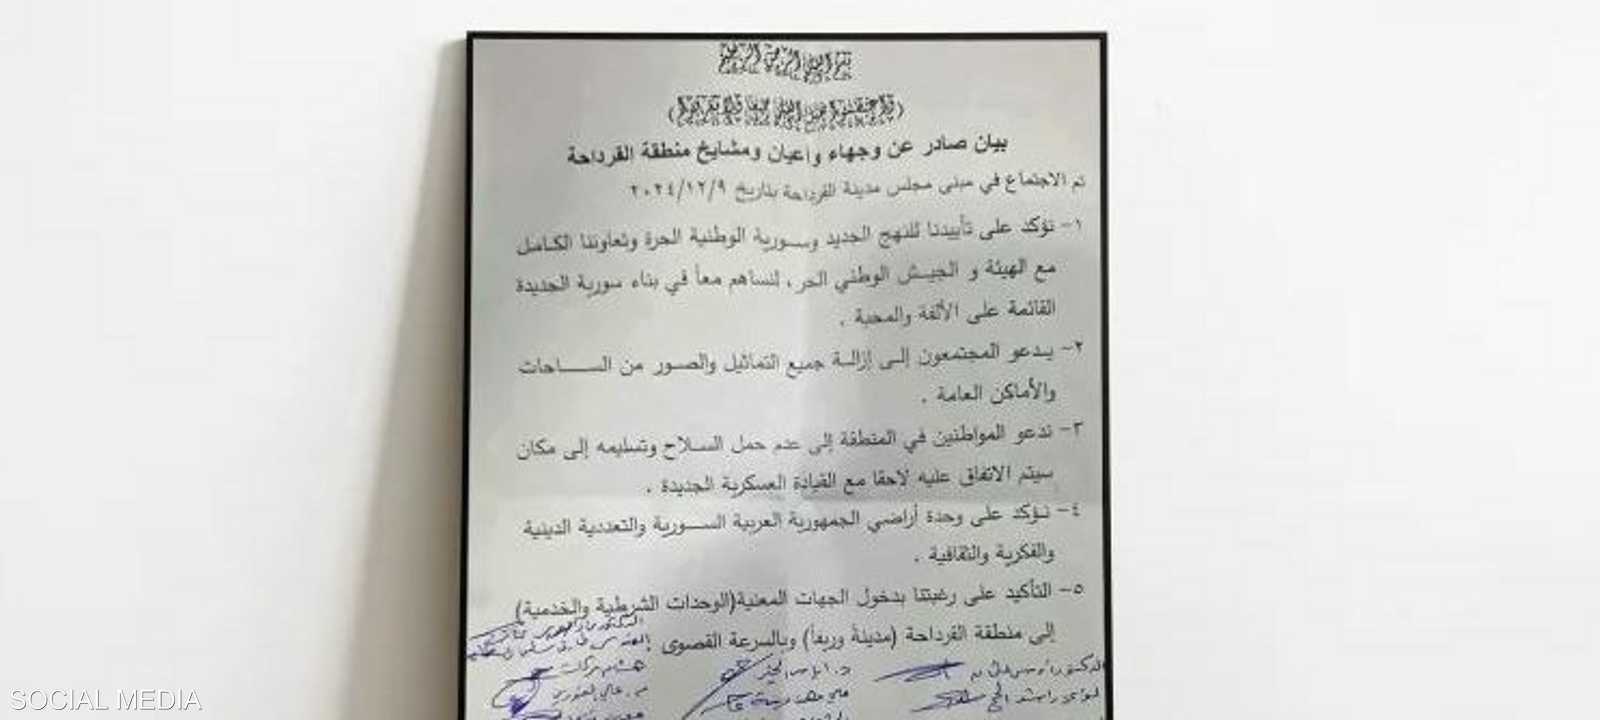 بسم الله الرحمن الرحيم
(واعتصموا بحبل الله جميعا ولا تفرقوا)
بيان صادر عن وجهاء وأعيان ومشايخ منطقة القرداحة
تم الاجتماع في مبنى مجلس مدينة القرداحة بتاريخ ٢٠٢٤/١٢/٩
١- نؤكد على تأييدنا للنهج الجديد وسورية الوطنية الحرة وتعاوننا الكامل
مع الهيئة و الجيش الوطني الحر ، لنساهم معاً في بناء سورية الجديدة
القائمة على الألفة والمحبة .
٢- يدعو المجتمعون إلى إزالة جميع التماثيل والصور من الساحات
والأماكن العامة .
٣- ندعو المواطنين في المنطقة إلى عدم حمل السلاح وتسليمه إلى مكان
سيتم الاتفاق عليه لاحقا مع القيادة العسكرية الجديدة .
٤- نؤكد على وحدة أراضي الجمهورية العربية السورية والتعددية الدينية
والفكرية والثقافية .
٥- التأكيد على رغبتنا بدخول الجهات المعنية(الوحدات الشرطية والخدمية)
إلى منطقة القرداحة (مدينة وريفاً) وبالسرعة القصوى .
SOCIAL MEDIA